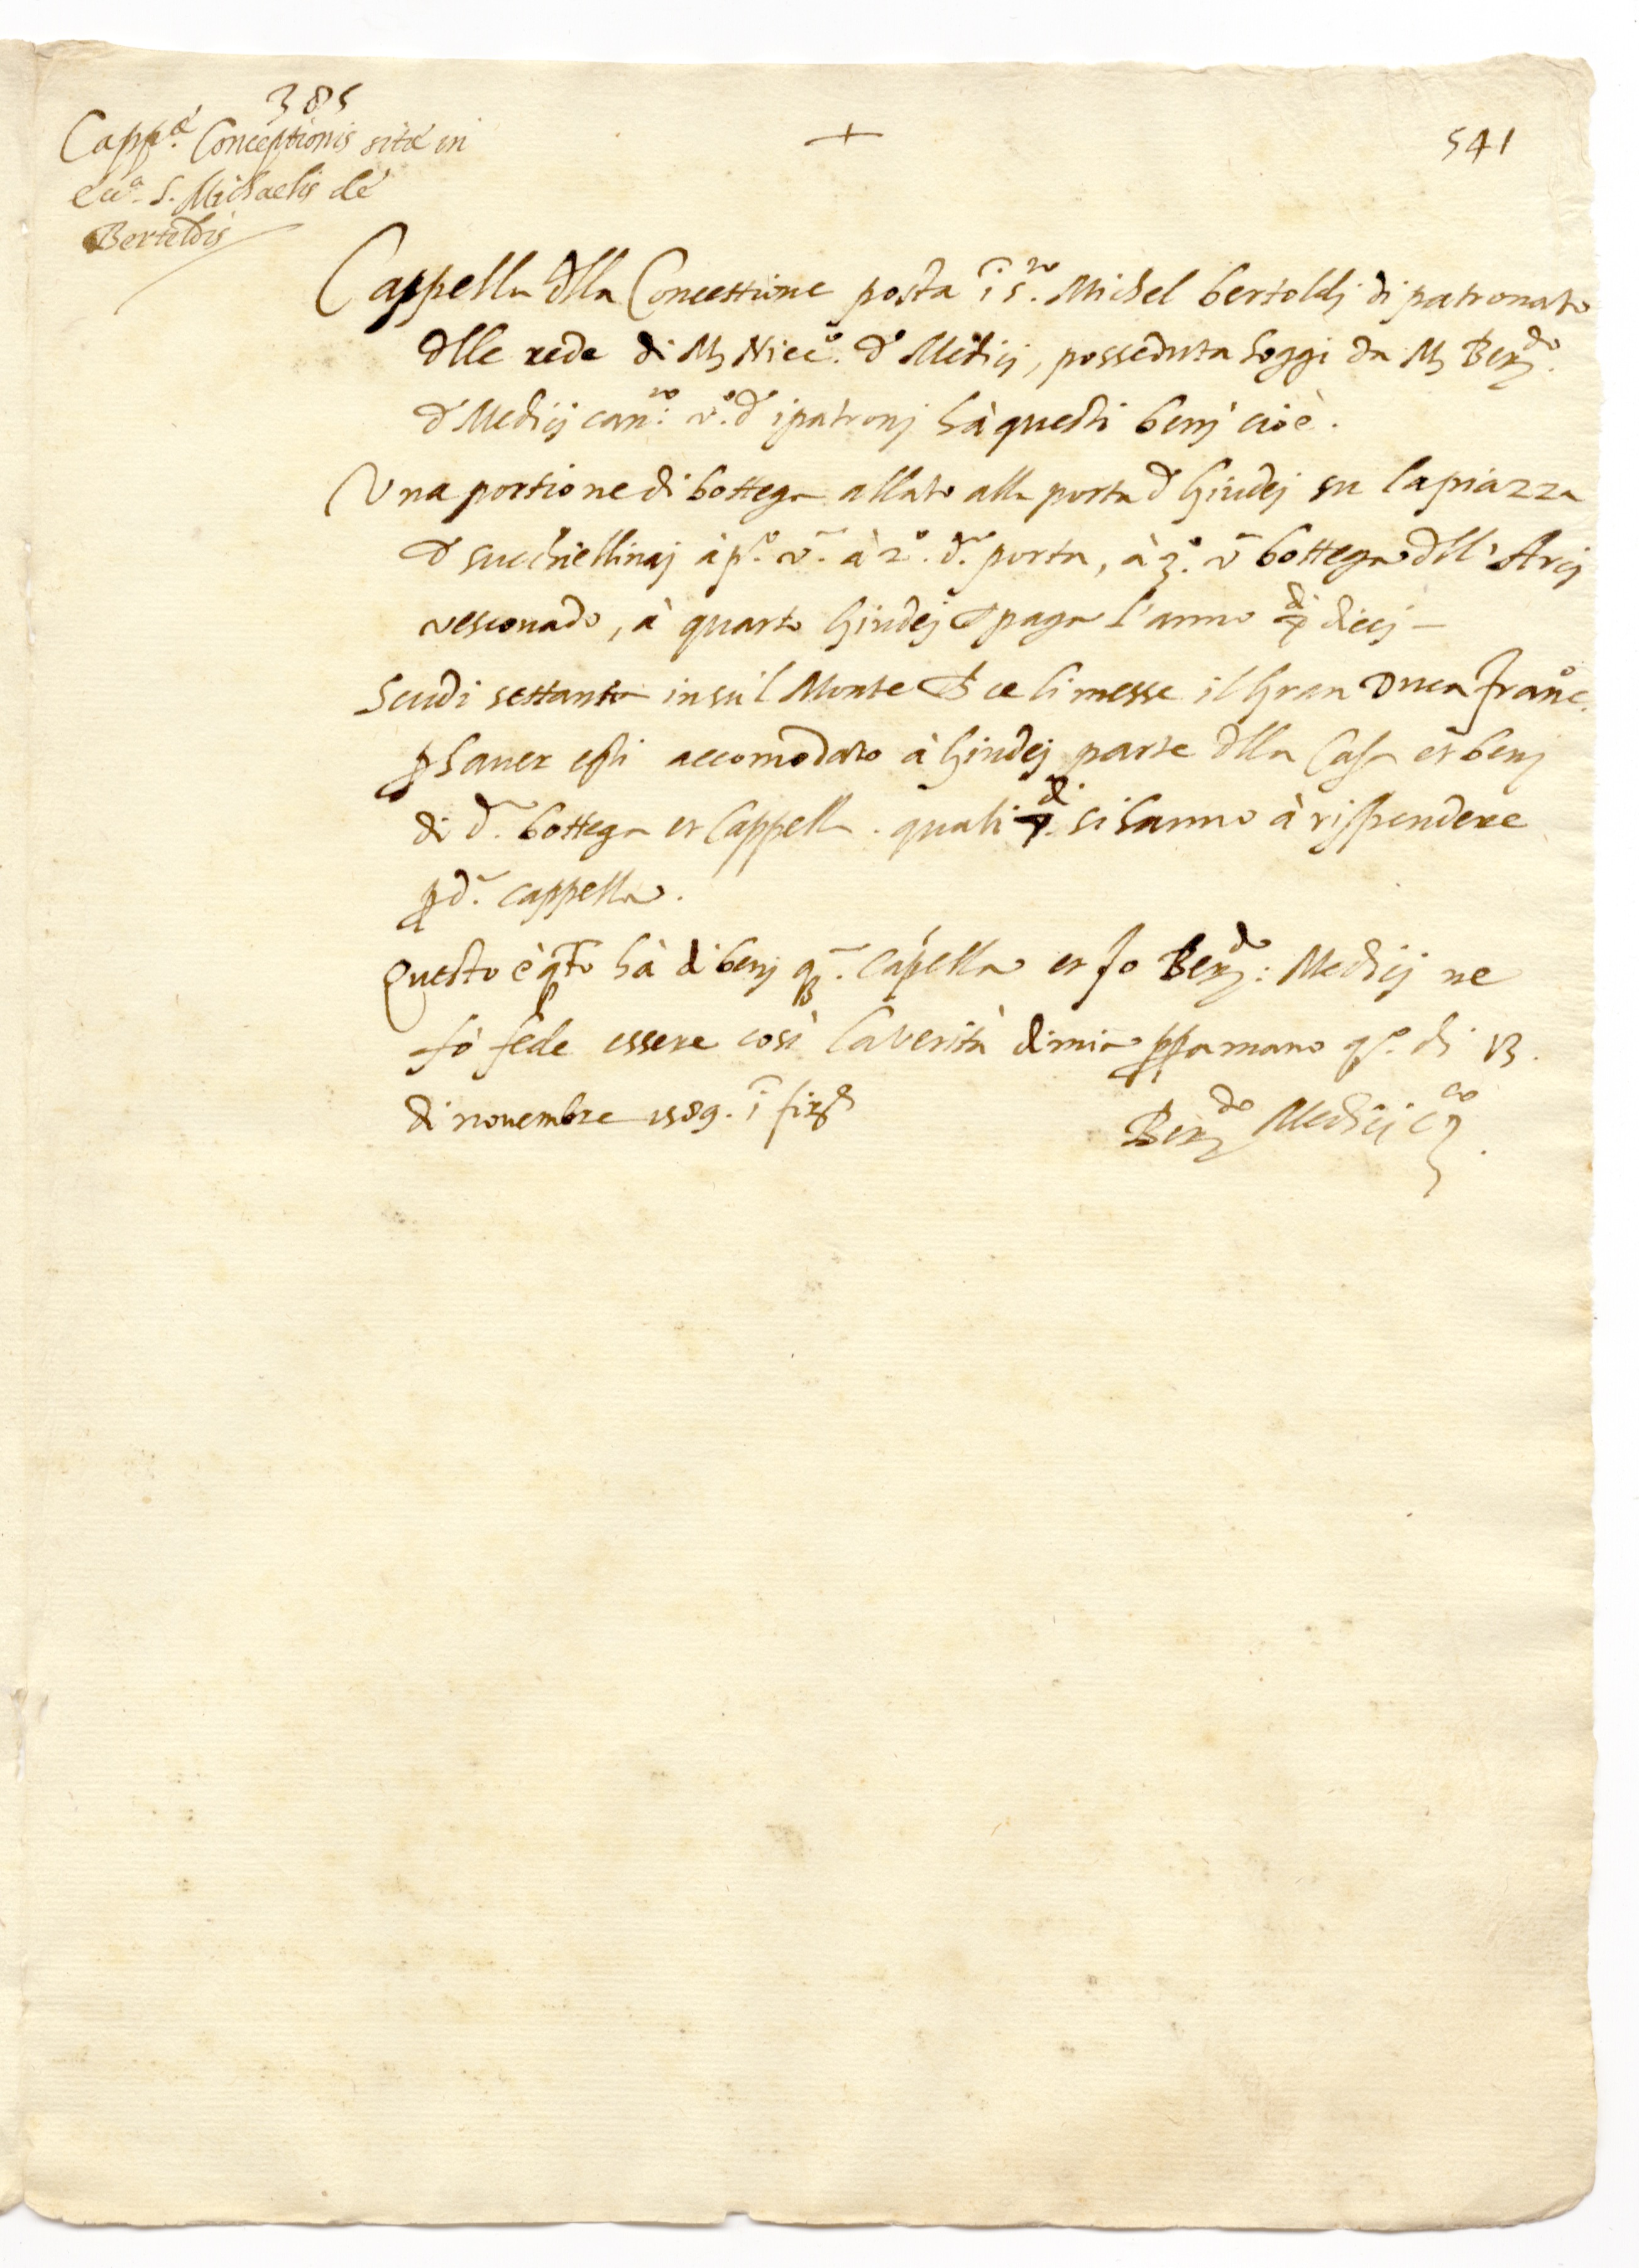 385
Capp.ᵃᵉ Conceptionis sitae in
ecc.ᵃ S. Michaelis de
Berteldis
+
541
Cappella dlla Concettione posta ĩ s.ᵗᵒ Michel bertoldj di patronato
dlle rede di M Nicc.ᵒ d Medicj, posseduta hoggi da M Berⁿ.ᵈᵒ
d Medicj can.ᶜᵒ v.ᵒ d i patronj hà questi benj cioè.
Una portione di bottega allato alla porta d Giudej su la piazza
d succhiellinaj à p.ᵒ v.ᵃ à 2.ᵒ d.ᵃ porta, à 3.ᵒ v.ᵃ bottega dll'Arcj
vescouado, à quarto Giudej paga l'anno ∇ᵈⁱ diecj —
Scudi settanta in su'l Monte ce li messe il Gran Duca Franc.ᵒ
ꝑ hauer esti accomodato à Giudej parte dlla Casa et benj
di d.ᵃ bottega et Cappella. quali ∇.ᵈⁱ si hanno à rispendere
ꝑ d.ᵃ cappella.
Questo è qto hà di benj q.ᵃ capella et Jo Berⁿ.ᵈᵒ Medicj ne
fò fede essere così la verità di mia ppa mano q.ᵒ dì 13.
di nouembre 1589. ĩ firᶻᵉ
Berⁿ.ᵈᵒ Medicj cⁿ.ᶜᵒ